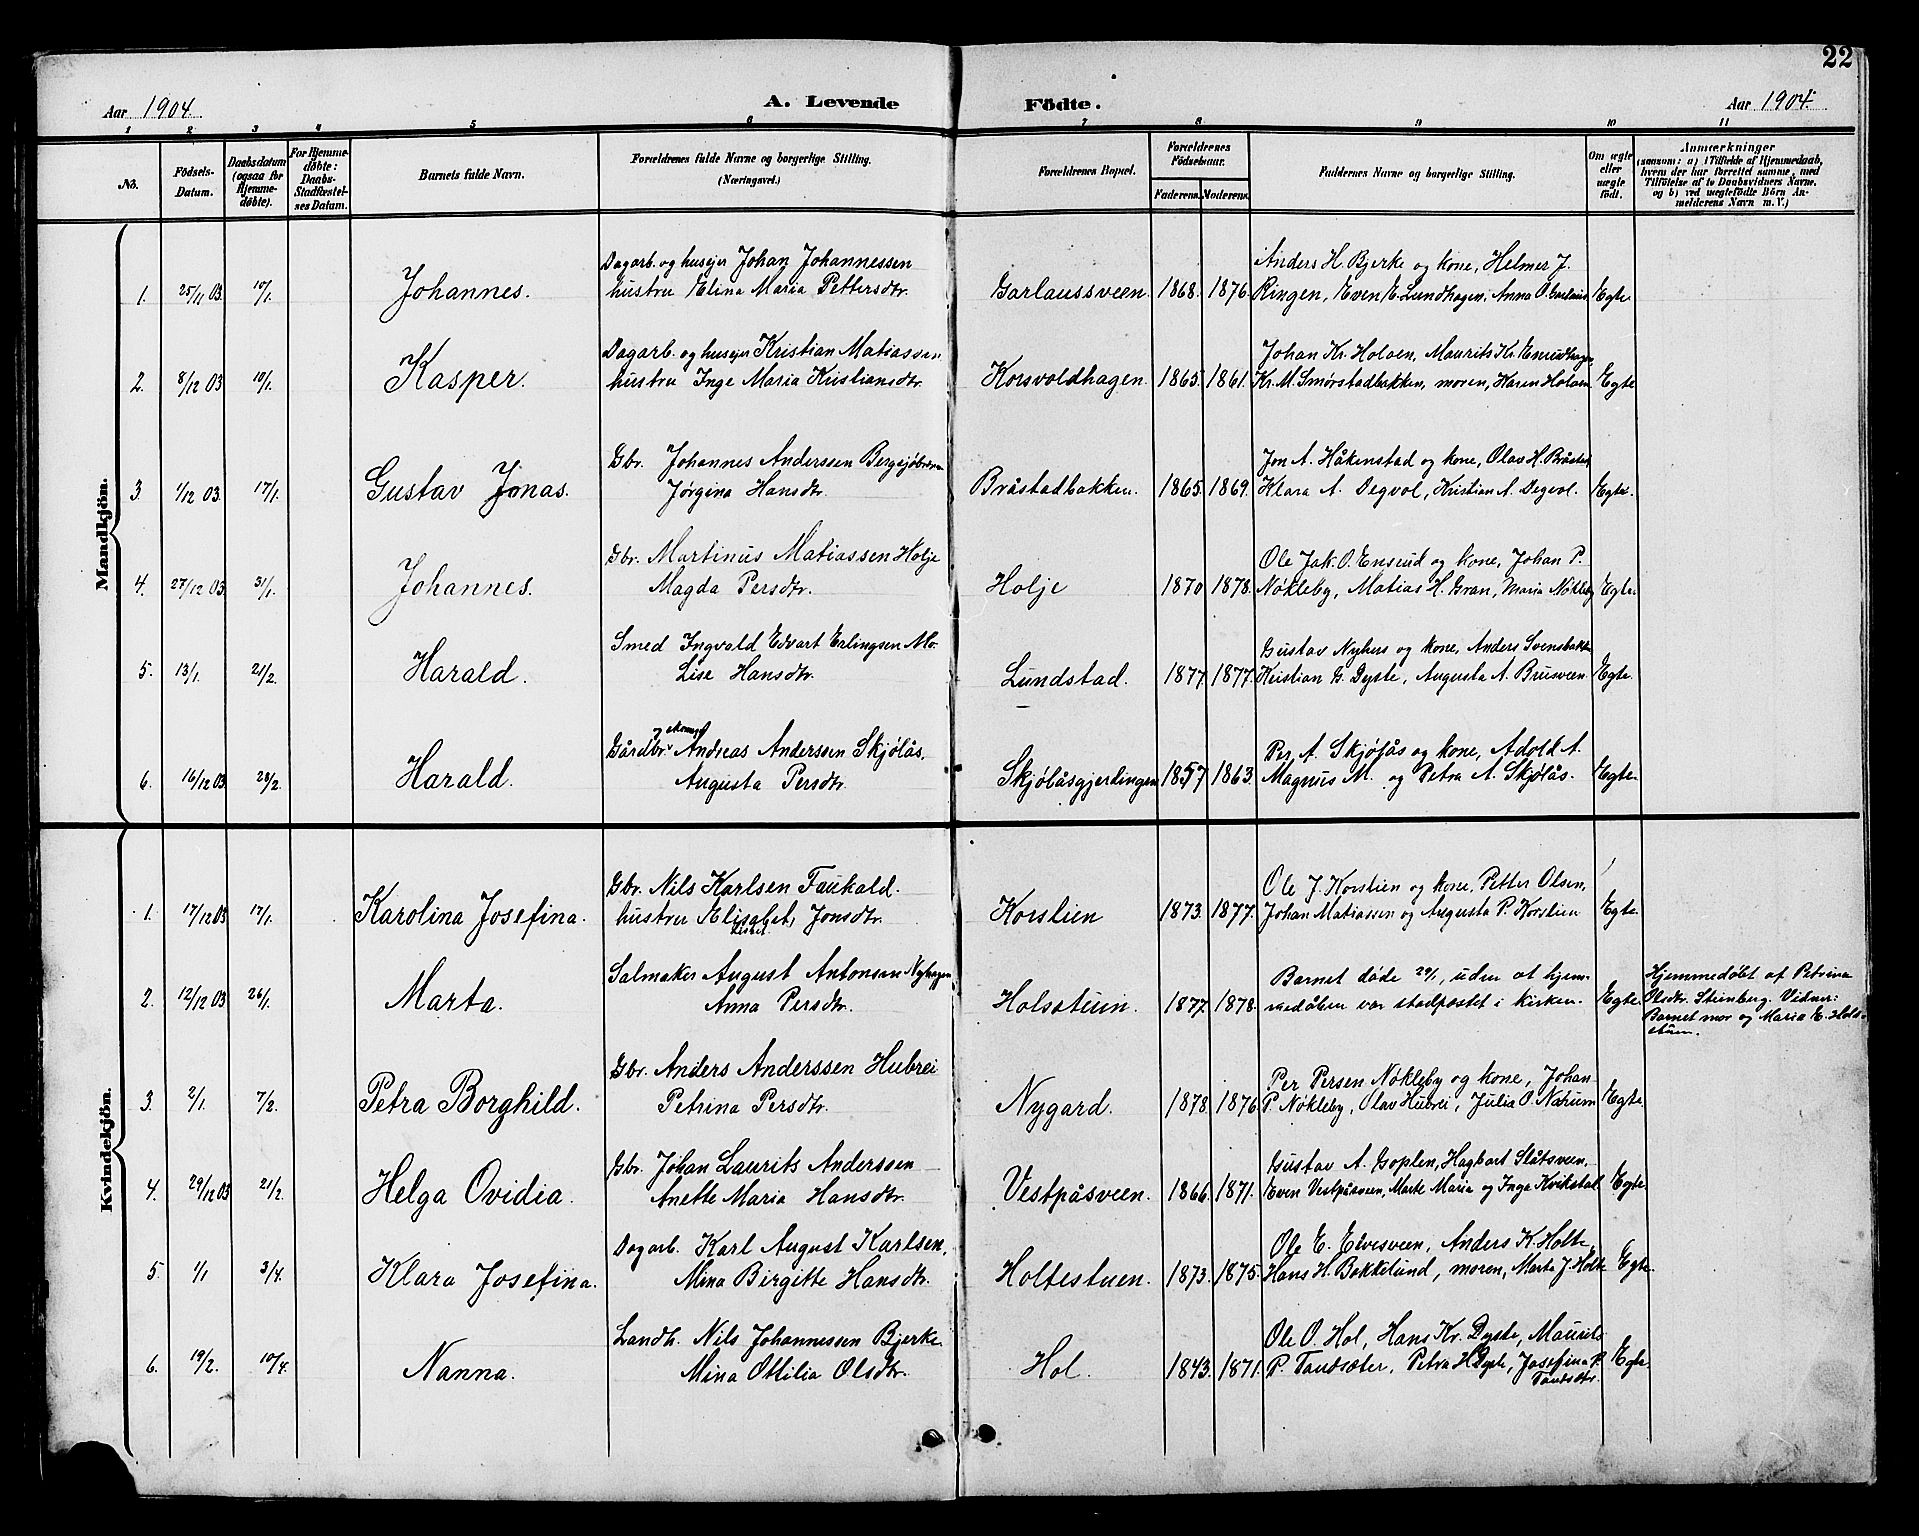 22
Aar 1904. A. Levende Födte. Aar 1904.
1 2 3 4 5 6 7 8 9 10 11
No.
Födsels-
Datum.
Daabsdatum
(ogsaa for
Hjemme-
døbte).
For Hjemme-
døbte:
Daabs-
Stadfæstel-
ses Datum.
Barnets fulde Navn.
Forældrenes fulde Navne og borgerlige Stilling.
(Næringsvei.)
Forældrenes Bopæl.
Forældrenes
Födselsaar.
Faderens. Moderens.
Faddernes Navne og borgerlige Stilling.
Om ægte
eller
uægte
født.
Anmærkninger
(saasom: a) i Tilfælde af Hjemmedaab,
hvem der har forrettet samme, med
Tilføielse af to Daabsvidners Navne,
og b) ved uægtefødte Börn An-
melderens Navn m. V.)
Mandkjön.
Dagarb. og husejer Johan Johannessen Anders H. Bjerke og kone, Helmer J.
1. 25/11 03. 10/1. Johannes. hustru Elina Maria Pettersdtr. Garlaussveen 1868. 1876. Ringen, Even E. Lundhagen, Anna O. Garlaus Egte
Dagarb. og husejer Kristian Matiassen Johan Kr. Holoen, Maurits Kr.
2. 8/12 03 10/1. Kasper. hustru Inge Maria Kristiansdtr. Korsvoldhagen. 1865. 1861. Kr. M. Smørstadbakken, moren, Karen Holoen Egte
Gbr. Johannes Anderssen Jon A. Håkenstad og kone, Olav H. Bråstad
3. 1/12 03. 17/1. Gustav Jonas. Jørgina Hansdtr. Bråstadbakken. 1865. 1869. Klara A. Degvol, Kristian A. Degvol. Egte.
Gbr. Martinus Matiassen Holje Ole Jak. O. Ensrud og kone, Johan P.
4. 27/12 03. 31/1. Johannes. Magda Persdtr. Holje 1870 1878. Nøkleby, Matias H. Gran, Maria Nøkleby Egte.
Smed Ingvald Edvart Erlingsen Mo. Gustav Nyhus og kone, Anders Svensbakken
5. 13/1. 21/2. Harald. Lise Hansdtr. Lundstad. 1877 1877. Kristian G. Dyste, Augusta A. Brusveen Egte.
Gårdbr. Andreas Anderssen Skjølås. Per A. Skjølås og kone, Adold A.
6. 16/12 03 28/2. Harald. Augusta Persdtr. Skjølåsgjerdingen 1857 1863. Magnus M. og Petra A. Skjølås. Egte.
Kvindekjön.
Gbr. Nils Karlsen Faukald. Ole J. Korslien og kone, Petter Olsen,
1. 17/12 03 17/1. Karolina Josefina. hustru Elisabet Jonsdtr. Korslien 1873. 1877. Johan Matiassen og Augusta P. Korslien Egte.
Salmaker August Antonsen Nyhagen Barnet døde 29/1, uden at hjem- Hjemmedøbt af Petrina
2. 12/12 03 26/1. Marta. Anna Persdtr. Holsstuen. 1877. 1878. medåben var stadfæstet i kirken. Egte. Olsdtr. Steinberg. Vidner:
Barnet mor og Maria E. Hols-
stuen.
Gbr. Anders Anderssen Hubrei Per Persen Nøkleby og kone, Johan
3. 2/1. 7/2. Petra Borghild. Petrina Persdtr. Nygard. 1878. 1876. P. Nøkleby, Olav Hubrei, Julia O. Narum Egte.
Gbr. Johan Laurits Anderssen Gustav A. Goplen, Hagbart Slåtsveen,
4. 29/12 03 21/2. Helga Ovidia. Anette Maria Hansdtr. Vestpåsveen. 1866. 1871. Even Vestpåsveen, Marte Maria og Inga Kvikstad Egte.
Dagarb. Karl August Karlsen. Ole E. Elvesveen, Anders K. Holte,
5. 1/1 3/4. Klara Josefina. Mina Birgitte Hansdtr. Holtestuen. 1873. 1875. Hans H. Bakkelund, moren, Marte J. Holte Egte.
Landh. Nils Johannessen Bjerke Ole O. Hol, Hans Kr. Dyste, Maurits
6. 19/2. 10/4. Nanna. Mina Ottilia Olsdtr. Hol. 1843. 1871. P. Tandsæter, Petra H. Dyste, Josefina P. Egte